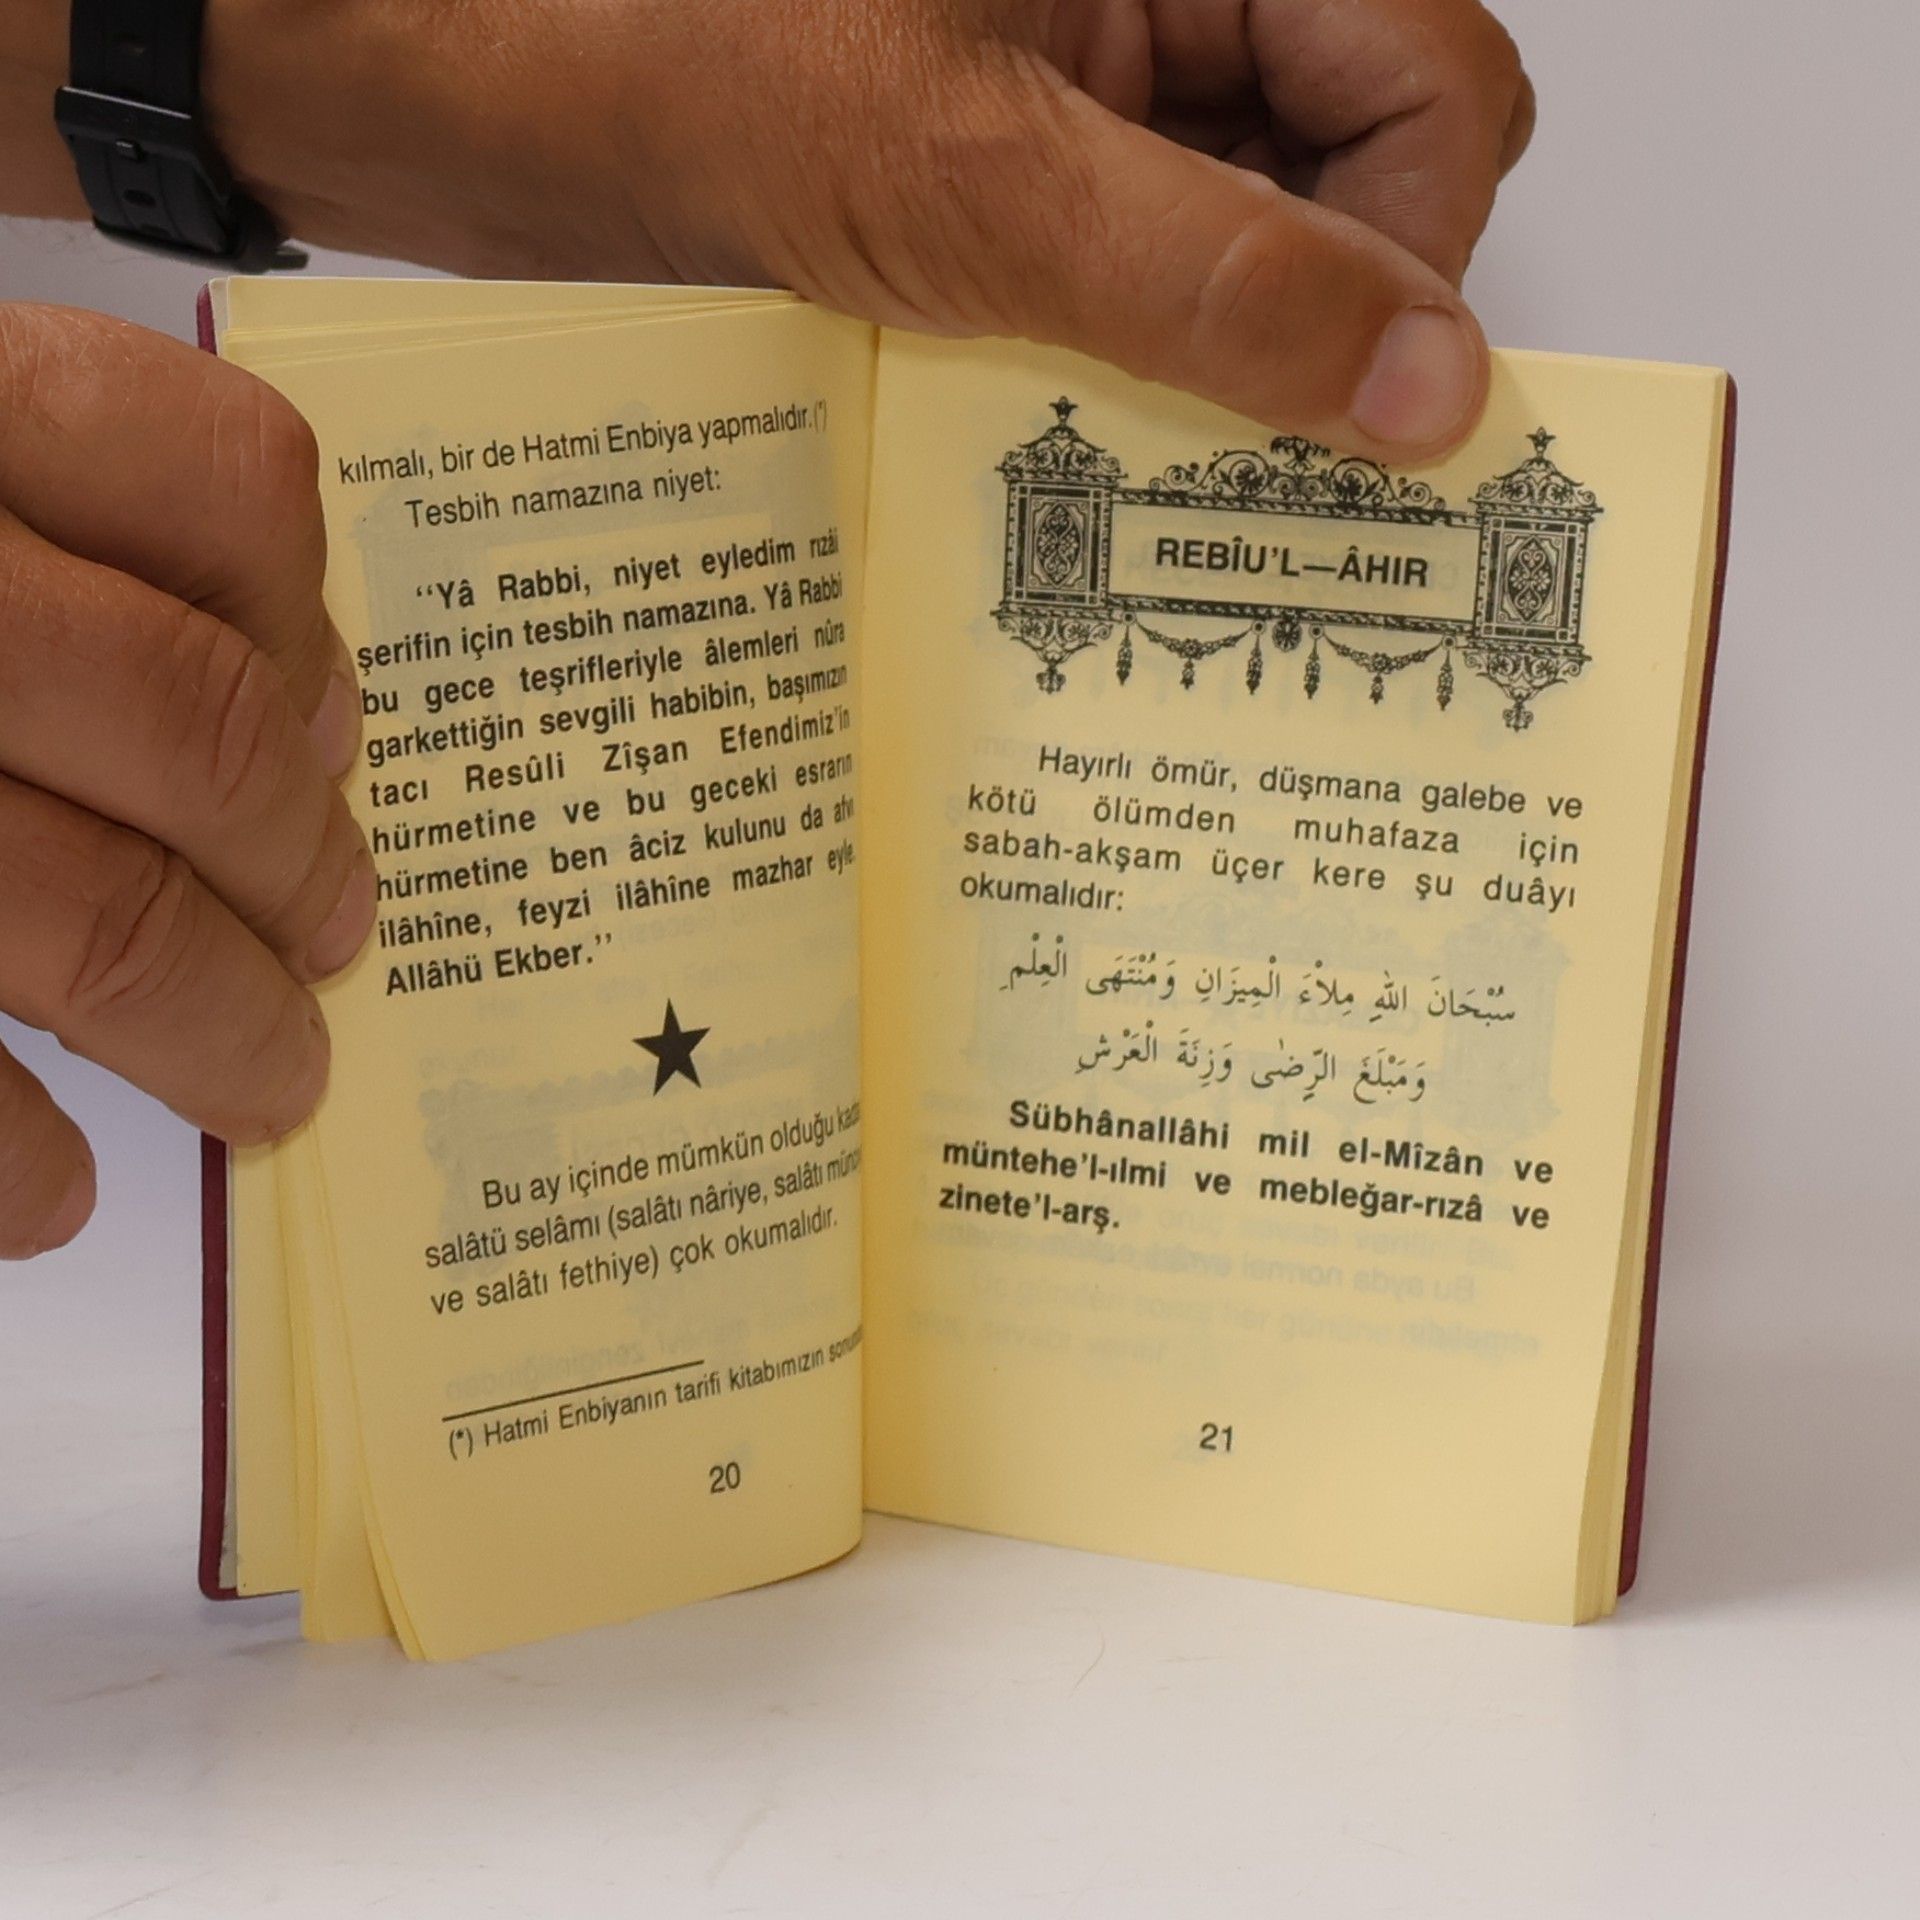 kılmalı, bir de Hatmi Enbiya yapmalıdır.(*)
Tesbih namazına niyet:
“Yâ Rabbi, niyet eyledim rızâi
şerifin için tesbih namazına. Yâ Rabbi
bu gece teşrifleriyle âlemleri nûra
garkettiğin sevgili habibin, başımızın
tacı Resûli Zîşan Efendimiz'in
hürmetine ve bu geceki esrarın
hürmetine ben âciz kulunu da afvı
ilâhîne, feyzi ilâhîne mazhar eyle.
Allâhü Ekber.”
Bu ay içinde mümkün olduğu
salâtü selâmı (salâtı nâriye, salâtı
ve salâtı fethiye) çok okumalıdır.
(*) Hatmi Enbiyanın tarifi kitabımızın
20
REBÎU'L—ÂHIR
Hayırlı ömür, düşmana galebe ve
kötü ölümden muhafaza için
sabah-akşam üçer kere şu duâyı
okumalıdır:
سُبْحَانَ اللهِ مِلاْءَ الْمِيزَانِ وَمُنْتَهَى الْعِلْمِ
وَمَبْلَغَ الرِّضٰى وَزِنَةَ الْعَرْشِ
Sübhânallâhi mil el-Mîzân ve
müntehe'l-ılmi ve mebleğar-rızâ ve
zinete'l-arş.
21